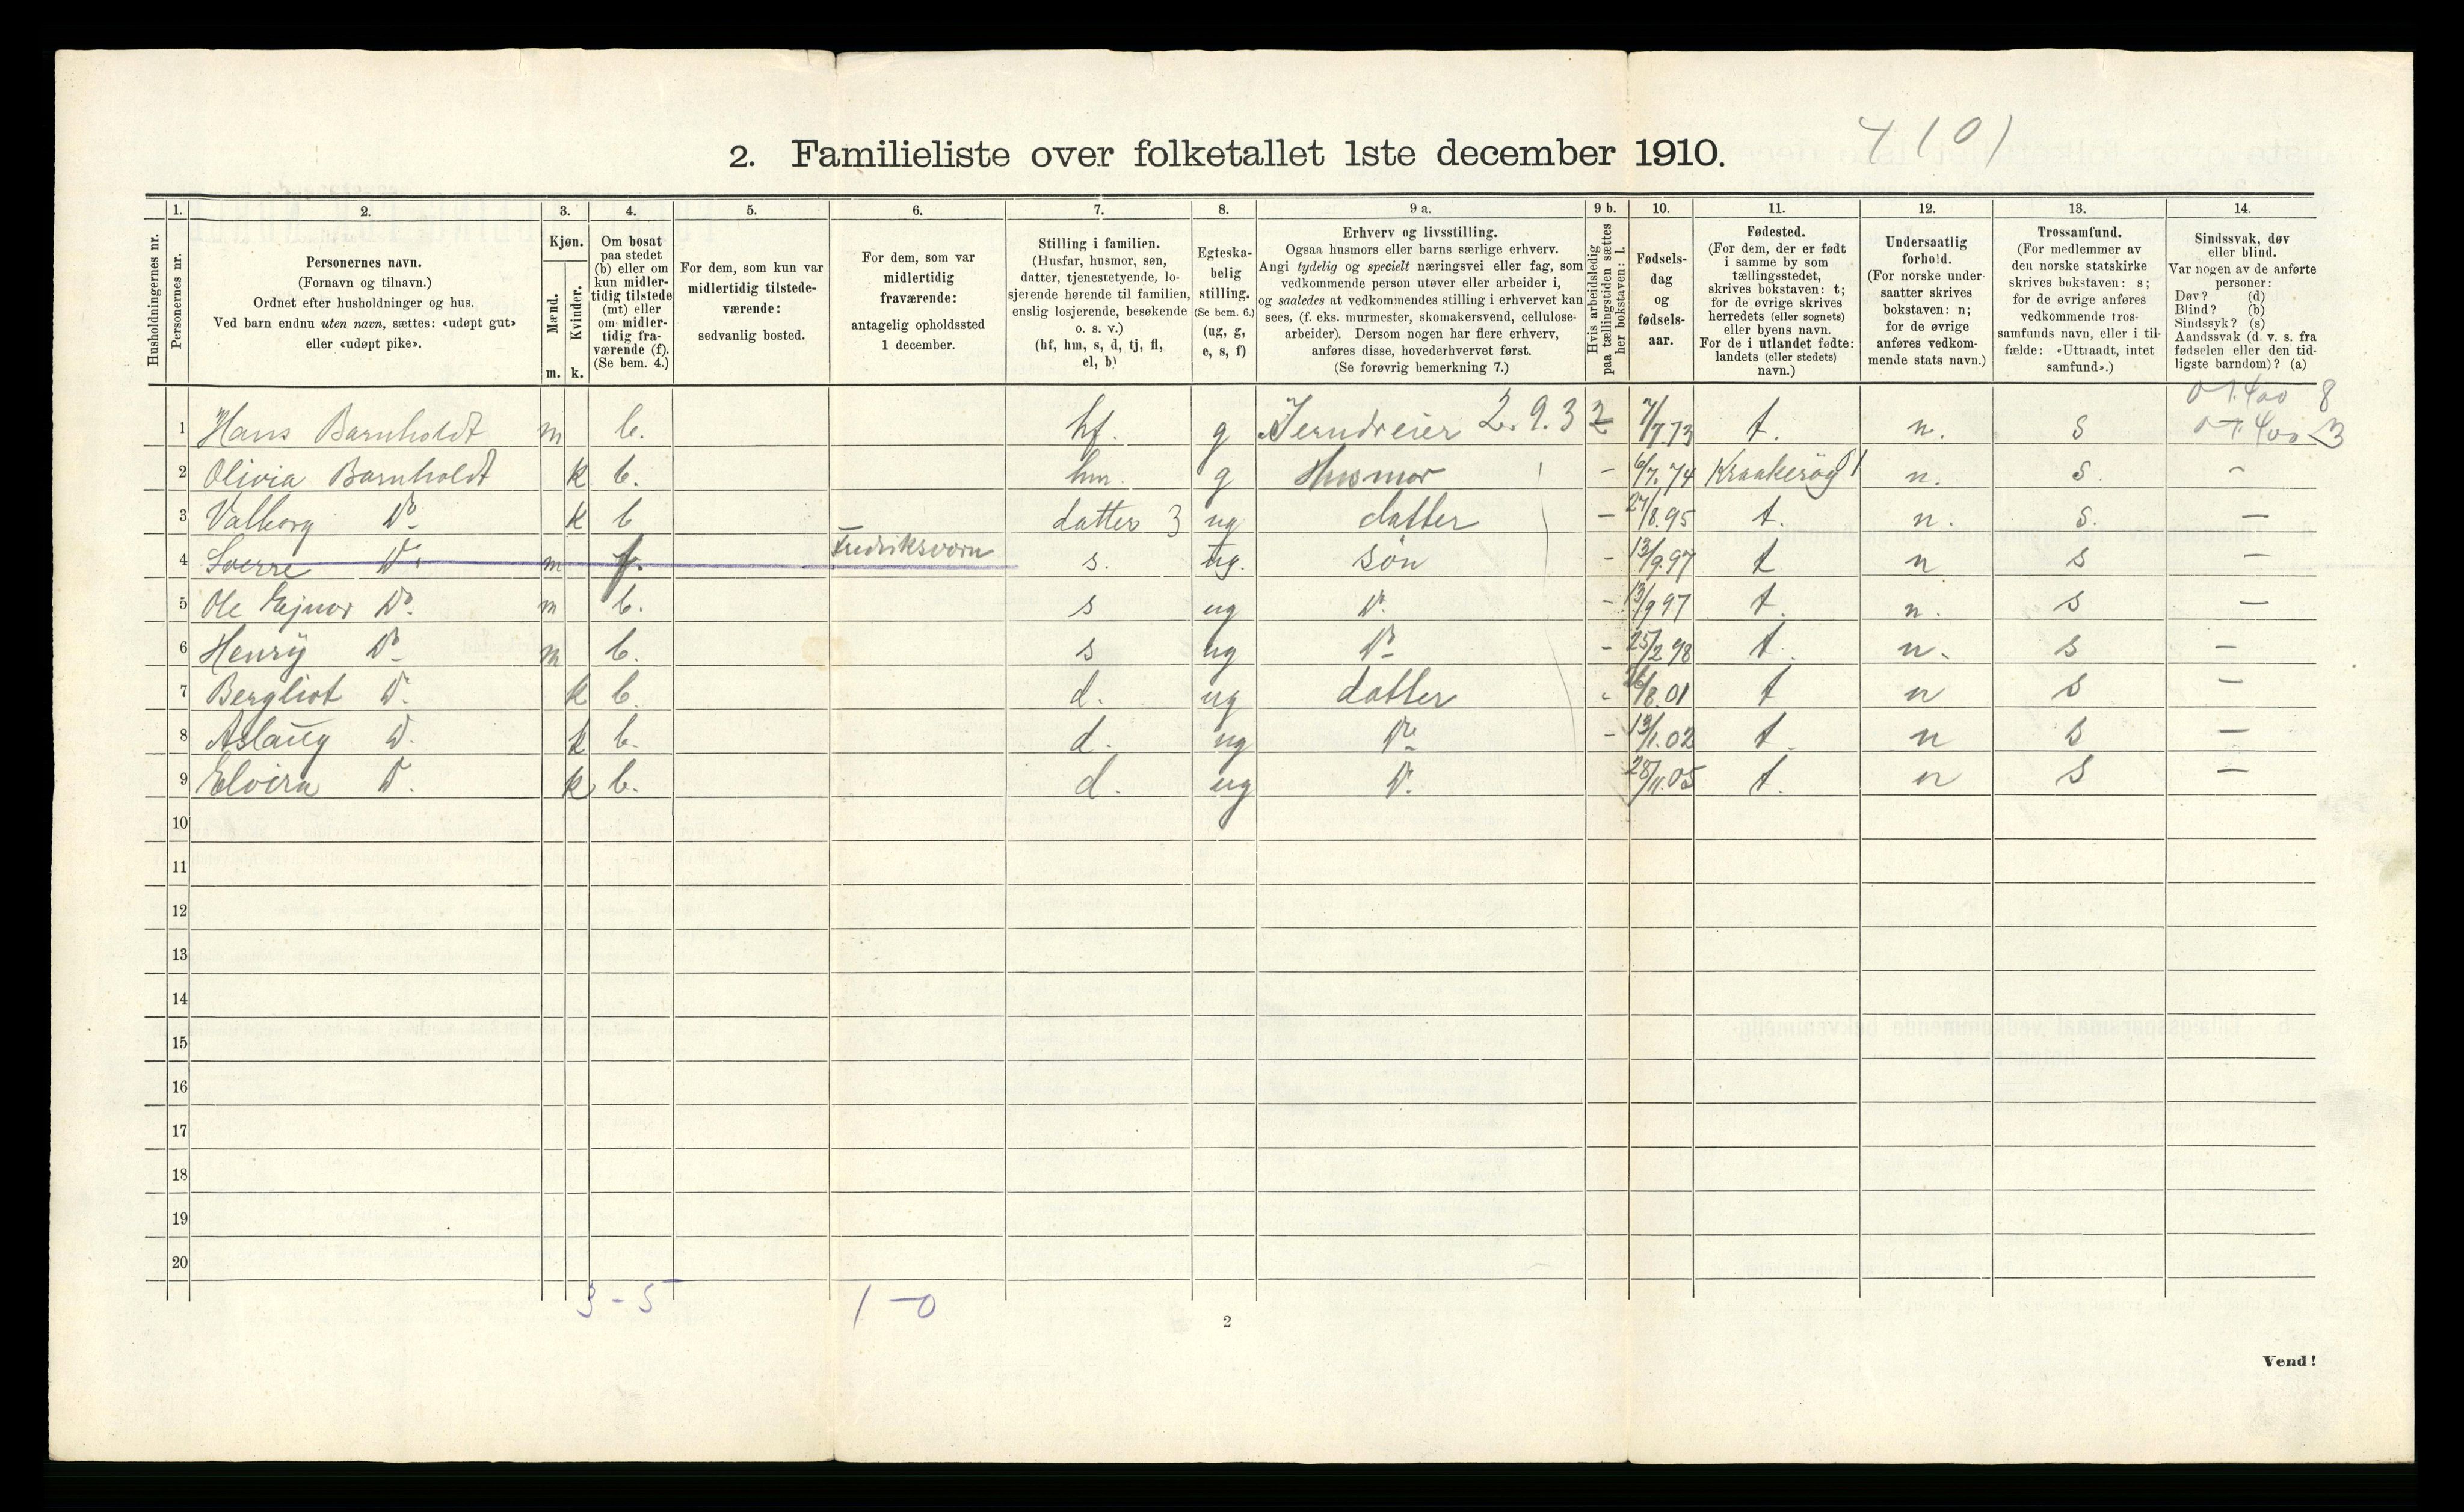 4 (0)
2. Familieliste over folketallet 1ste december 1910.
1. 2. 3. 4. 5. 6. 7. 8. 9 a. 9 b. 10. 11. 12. 13. 14.
Husholdningernes nr.
Personernes nr.
Personernes navn.
(Fornavn og tilnavn.)
Ordnet efter husholdninger og hus.
Ved barn endnu uten navn, sættes: «udøpt gut»
eller «udøpt pike».
Kjøn.
Mænd.
Kvinder.
m. k.
Om bosat
paa stedet
(b) eller om
kun midler-
tidig tilstede
(mt) eller
om midler-
tidig fra-
værende (f).
(Se bem. 4.)
For dem, som kun var
midlertidig tilstede-
værende:
sedvanlig bosted.
For dem, som var
midlertidig
fraværende:
antagelig opholdssted
1 december.
Stilling i familien.
(Husfar, husmor, søn,
datter, tjenestetyende, lo-
sjerende hørende til familien,
enslig losjerende, besøkende
o. s. v.)
(hf, hm, s, d, tj, fl,
el, b)
Egteska-
belig
stilling.
(Se bem. 6.)
(ug, g,
e, s, f)
Erhverv og livsstilling.
Ogsaa husmors eller barns særlige erhverv.
Angi tydelig og specielt næringsvei eller fag, som
vedkommende person utøver eller arbeider i,
og saaledes at vedkommendes stilling i erhvervet kan
sees, (f. eks. murmester, skomakersvend, cellulose-
arbeider). Dersom nogen har flere erhverv,
anføres disse, hovederhvervet først.
(Se forøvrig bemerkning 7.)
Hvis arbeidsledig
paa tællingstiden sættes
her bokstaven: l.
Fødsels-
dag
og
fødsels-
aar.
Fødested.
(For dem, der er født
i samme by som
tællingsstedet,
skrives bokstaven: t;
for de øvrige skrives
herredets (eller sognets)
eller byens navn.
For de i utlandet fødte:
landets (eller stedets)
navn.)
Undersaatlig
forhold.
(For norske under-
saatter skrives
bokstaven: n;
for de øvrige
anføres vedkom-
mende stats navn.)
Trossamfund.
(For medlemmer av
den norske statskirke
skrives bokstaven: s;
for de øvrige anføres
vedkommende tros-
samfunds navn, eller i til-
fælde: «Uttraadt, intet
samfund».)
Sindssvak, døv
eller blind.
Var nogen av de anførte
personer:
Døv? (d)
Blind? (b)
Sindssyk? (s)
Aandssvak (d. v. s. fra
fødselen eller den tid-
ligste barndom)? (a)
1 Hans Barnholdt m b. hf. g Jerndreier 2.9.3 2 7/7.73 t. n. s
2 Olivia Barnholdt k b. hm. g Husmor - 6/7.74 Kraakerøy n. s. -
3 Valborg Do k b datter 3 ug datter - 27/8.95 t. n. s. -
4 Sverre Do m f. Fredriksvorn s. ug. søn - 13/9.97 t n s -
5 Ole Ejnar Do m b. s ug Do - 13/9 97 t. n. s -
6 Henry Do m b. s ug Do - 25/2 98 t. n. s -
7 Bergliot Do k b. d. ug datter - 26/8.01 t n s -
8 Aslaug Do k b. d. ug Do - 13/1.02 t. n s -
9 Elvira Do k b. d. ug Do 28/11.05 t. n s -
10
11
12
13
14
15
16
17
18
19
20
3 - 5 1 - 0
2
Vend!